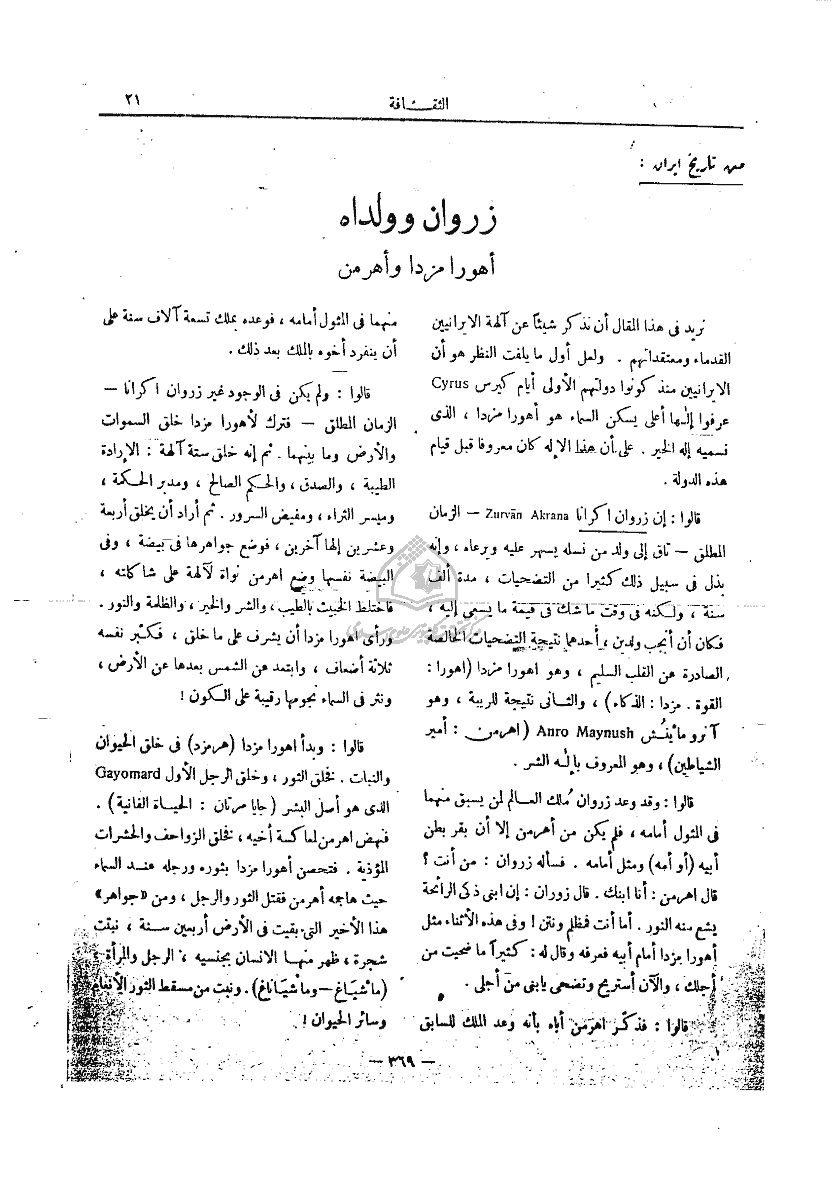 ٢١
الثقافة
من تاريخ ايران :
زروان وولداه
أهورا مزدا وأهرمن
نريد فى هذا المقال أن نذكر شيئاً عن آلهة الايرانيين
القدماء ومعتقداتهم . ولعل أول ما يلفت النظر هو أن
الايرانيين منذ كونوا دولتهم الأولى أيام كيرس Cyrus
عرفوا إلهاً أعلى يسكن السماء هو أهورا مزدا ، الذى
نسميه إله الخير . على أن هذا الإله كان معروفا قبل قيام
هذه الدولة .
قالوا : إن زروان اكرانا Zurvān Akrana – الزمان
المطلق – تاق إلى ولد من نسله يسهر عليه ويرعاه ، وإنه
بذل فى سبيل ذلك كثيرا من التضحيات ، مدة ألف
سنة ، ولكنه فى وقت ما شك فى قيمة ما يسمى إليه ،
فكان أن أنجب ولدين ، أحدهما نتيجة التضحيات الخالصة
الصادرة عن القلب السليم ، وهو اهورا مزدا (اهورا :
القوة . مزدا : الذكاء) ، والثانى نتيجة للريبة ، وهو
آنرو ماينُش Anro Maynush (اهرمن : أمير
الشياطين) ، وهو المعروف بإلٰه الشر .
قالوا : وقد وعد زروان مُلك العالم لمن يسبق منهما
فى المثول أمامه ، فلم يكن من أهرمن إلا أن بقر بطن
أبيه (أو أمه) ومثل أمامه . فسأله زروان : من أنت ؟
قال اهرمن : أنا ابنك . قال زوران : إن ابنى ذكى الرائحة
يشع منه النور . أما أنت فمظلم ونتن ! وفى هذه الأثناء مثل
أهورا مزدا أمام أبيه فعرفه وقال له : كثيراً ما ضحيت من
أجلك ، والآن أستريح وتضحى يابنى من أجلى .
قالوا : فذكّر اهرمن أباه بأنه وعد الملك للسابق
منهما فى المثول أمامه ، فوعده بملك تسعة آلاف سنة على
أن ينفرد أخوه بالملك بعد ذلك .
قالوا : ولم يكن فى الوجود غير زروان اكرانا –
الزمان المطلق – فترك لأهورا مزدا خلق السموات
والأرض وما بينهما . ثم إنه خلق ستة آلهة : الإرادة
الطيبة ، والصدق ، والحكم الصالح ، ومدبر الحكمة ،
وميسر الثراء ، ومفيض السرور . ثم أراد أن يخلق أربعة
وعشرين إلها آخرين ، فوضع جواهرها فى بيضة ، وفى
البيضة نفسها وضع اهرمن نواة لآلهة على شاكلته ،
فاختلط الخبيث بالطيب ، والشر والخير ، والظلمة والنور .
ورأى اهورا مزدا أن يشرف على ما خلق ، فكبّر نفسه
ثلاثة أضعاف ، وابتعد عن الشمس بعدها عن الأرض ،
ونثر فى السماء نجومها رقيبة على الكون !
قالوا : وبدأ اهورا مزدا (هرمزد) فى خلق الحيوان
والنبات . فخلق الثور ، وخلق الرجل الأول Gayomard
الذى هو أصل البشر (جايا مرتان : الحياة الفانية) .
فنهض اهرمن لمعاكسة أخيه ، فخلق الزواحف والحشرات
المؤذية . فتحصن أهورا مزدا بثوره ورجله عند السماء
حيث هاجمه أهرمن فقتل الثور والرجل ، ومن «جواهر»
هذا الأخير التى بقيت فى الأرض أربعين سنة ، نبتت
شجرة ، ظهر منها الانسان بجنسيه ، الرجل والمرأة
(ماشياغ – وماشياناغ) . ونبت من مسقط الثور الأنعام
وسائر الحيوان !
– ٣٦٩ –